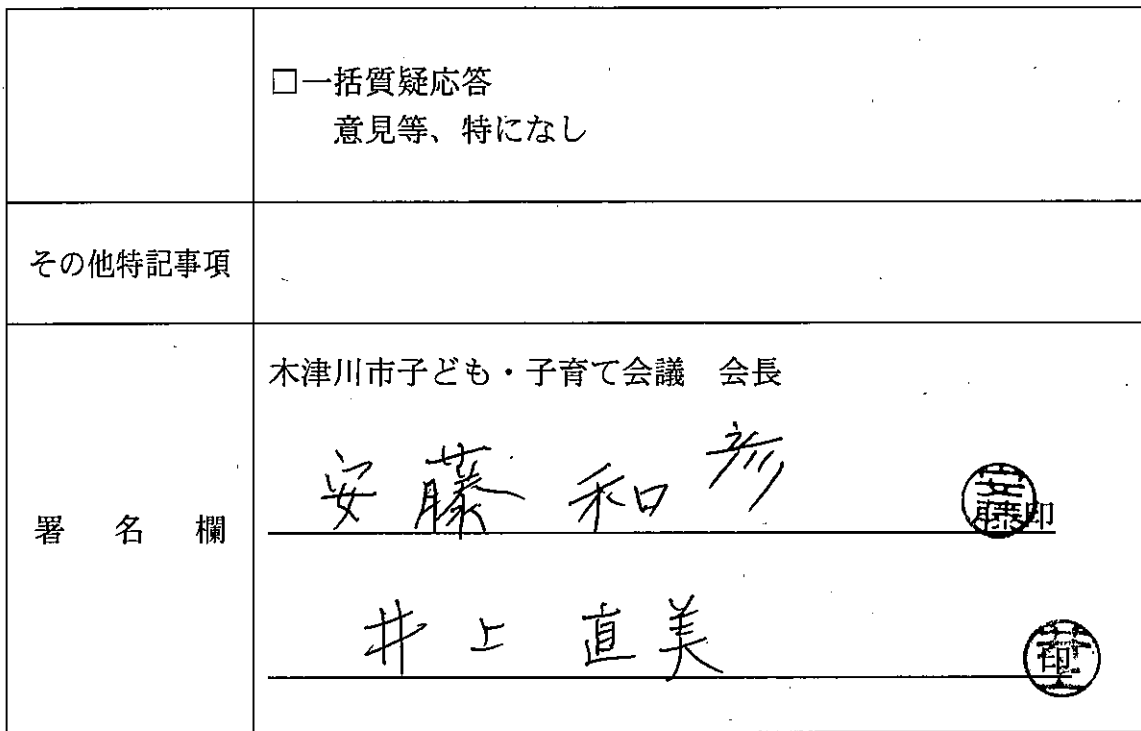 □一括質疑応答
意見等、特になし
その他特記事項
木津川市子ども・子育て会議 会長
署名欄
安藤和彦
安藤 印
井上直美
井上 印